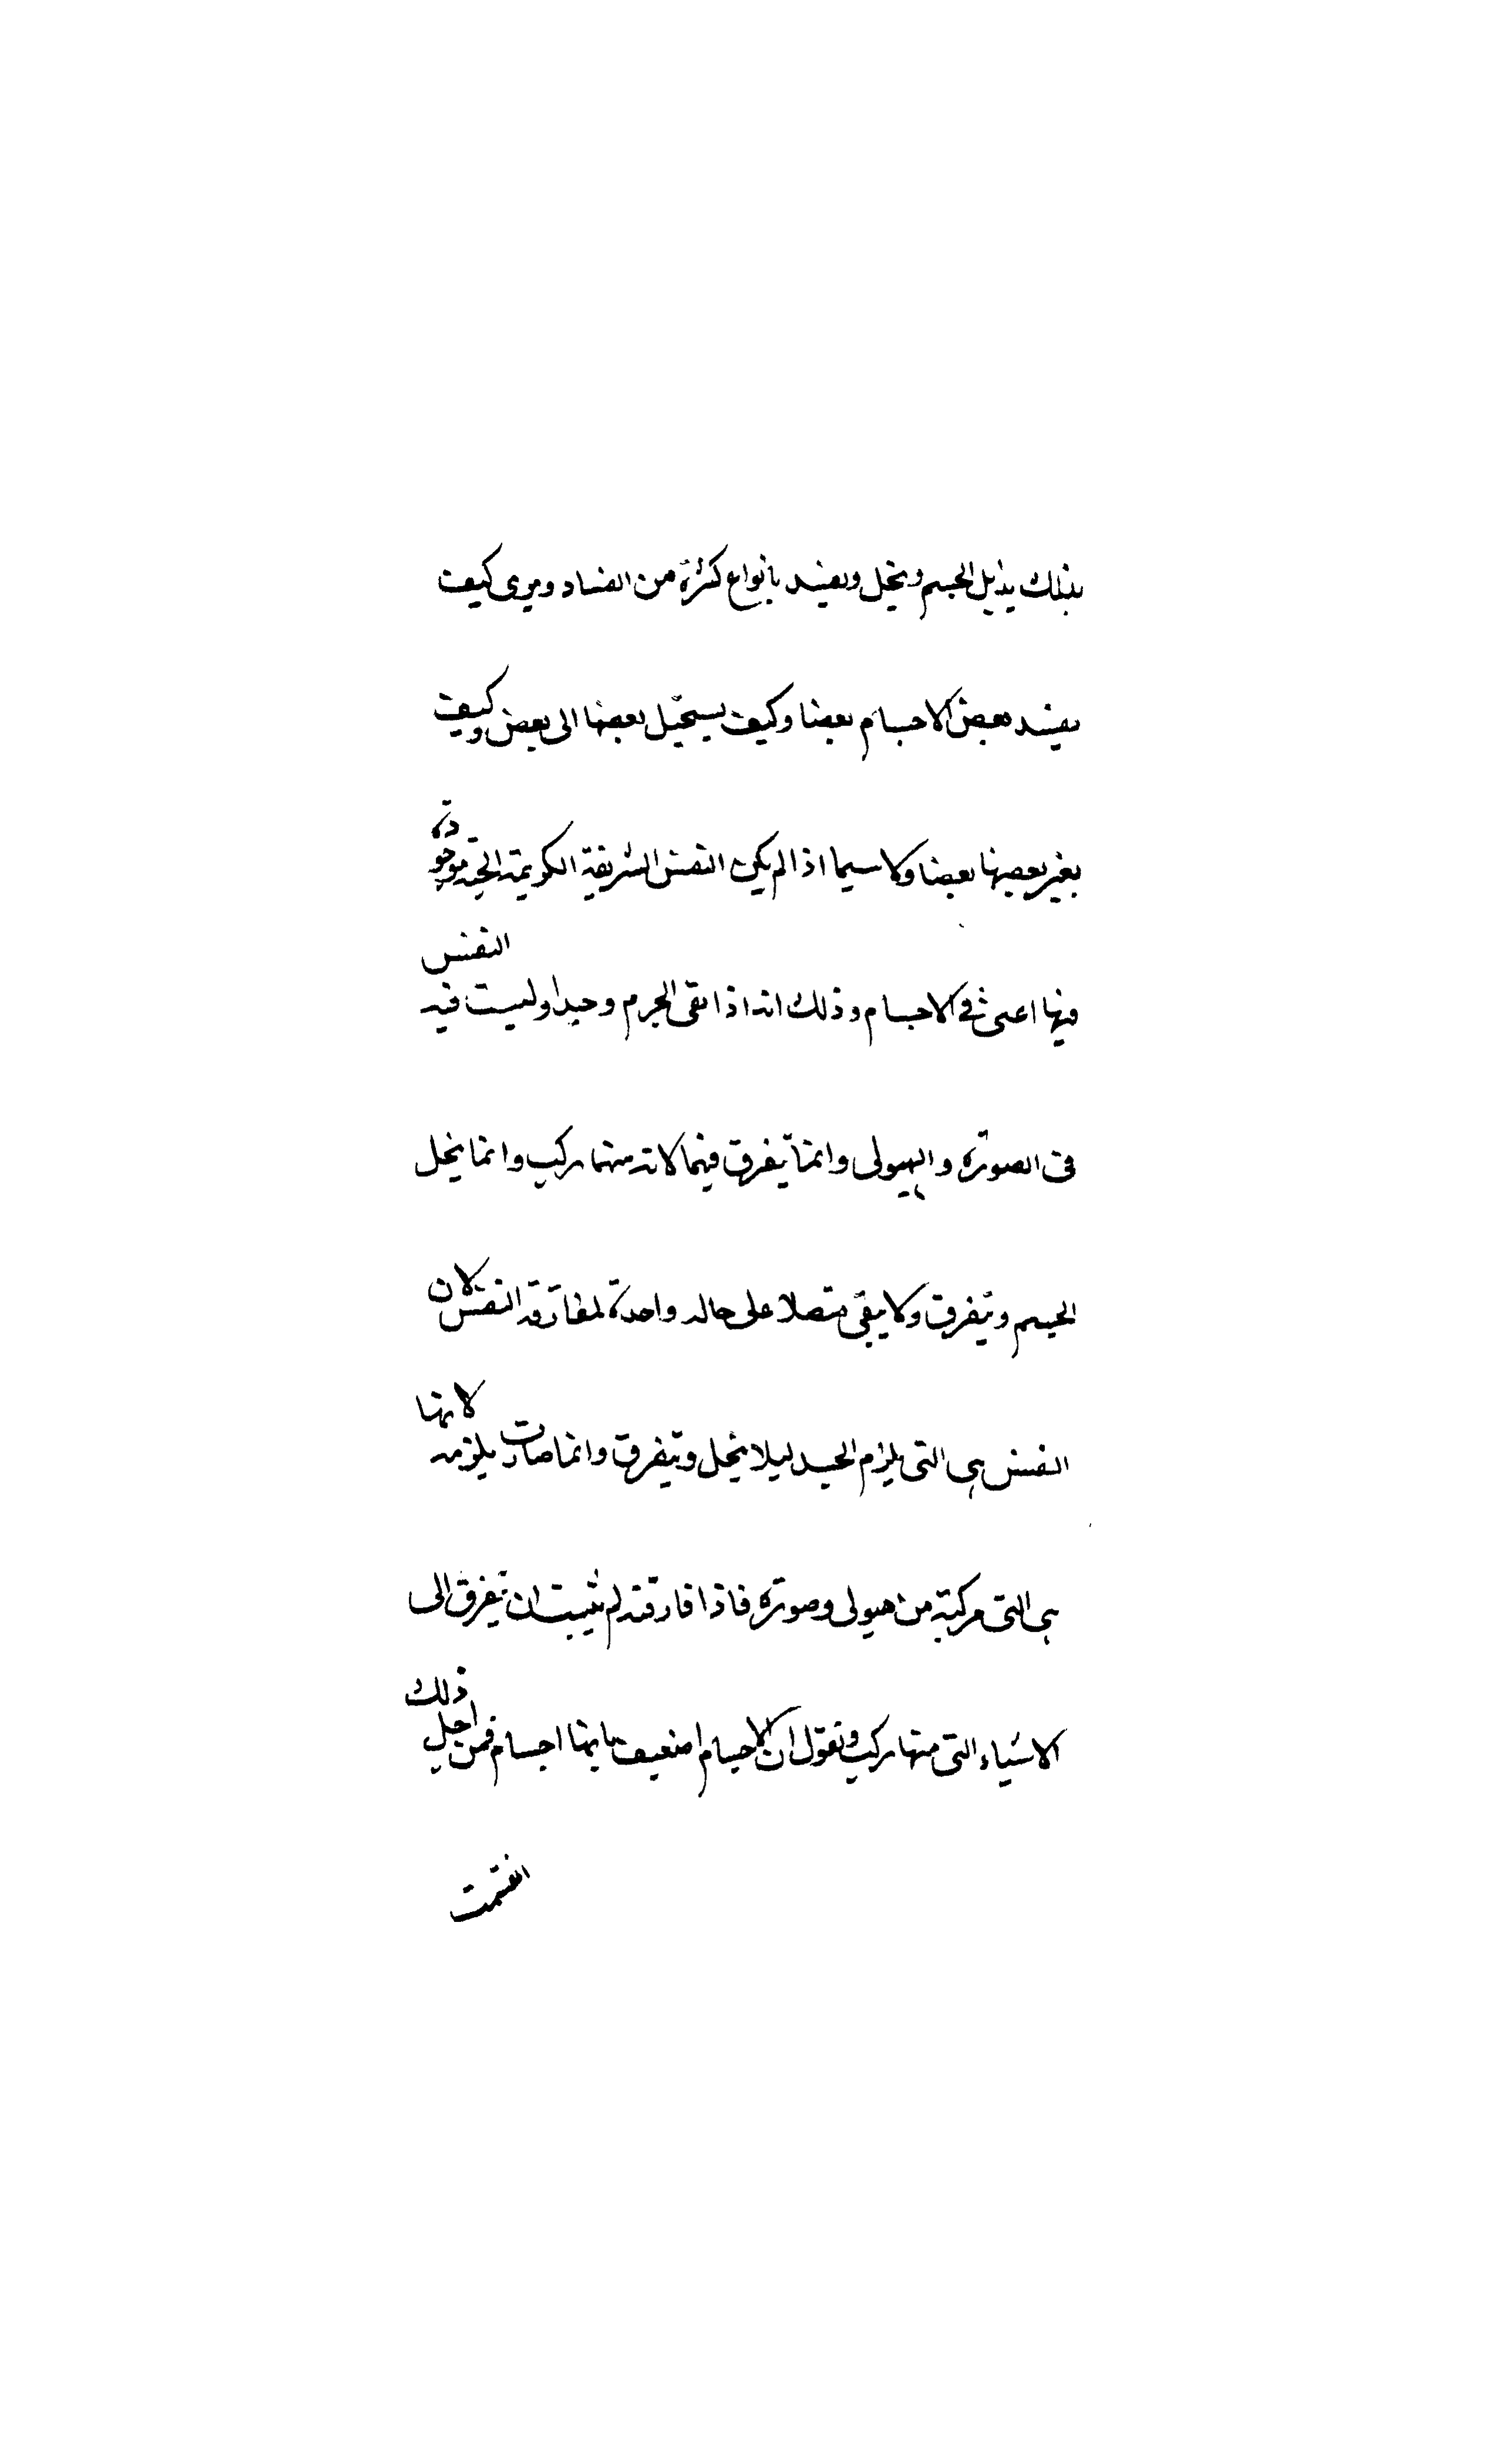 بذلك يذبل الجسم وينحل ويفسد بانواع كثيرة من الفساد ويرى كيف
يفسد بعض الاجسام بعضا وكيف يستحيل بعضها الى بعض وكيف
يغير بعضها بعضا ولا سيما اذا لم يكن النفس الشريفة الكريمة الحية موجودة
فيها اعنى فى الاجسام وذلك انه اذا بقى الجرم وحيدا وليست فيه النفس
فى الصورة والهيولى وانما يتفرق فيهما لانه منهما ركب وانما ينحل
الجسم ويتفرق ولا يبقى متصلا على حاله واحدة لمفارقة النفس لان
النفس هى التى يلزم الجسد ليلا ينحل ويتفرق وانما صارت يلزمه لانها
هى التى مركبة من هيولى وصورة فاذا فارقته لم يثبت ان يتفرق الى
الاشياء التى منها ركب ونقول ان الاجسام بانها اجسام فمن اجل ذلك
انقسمت